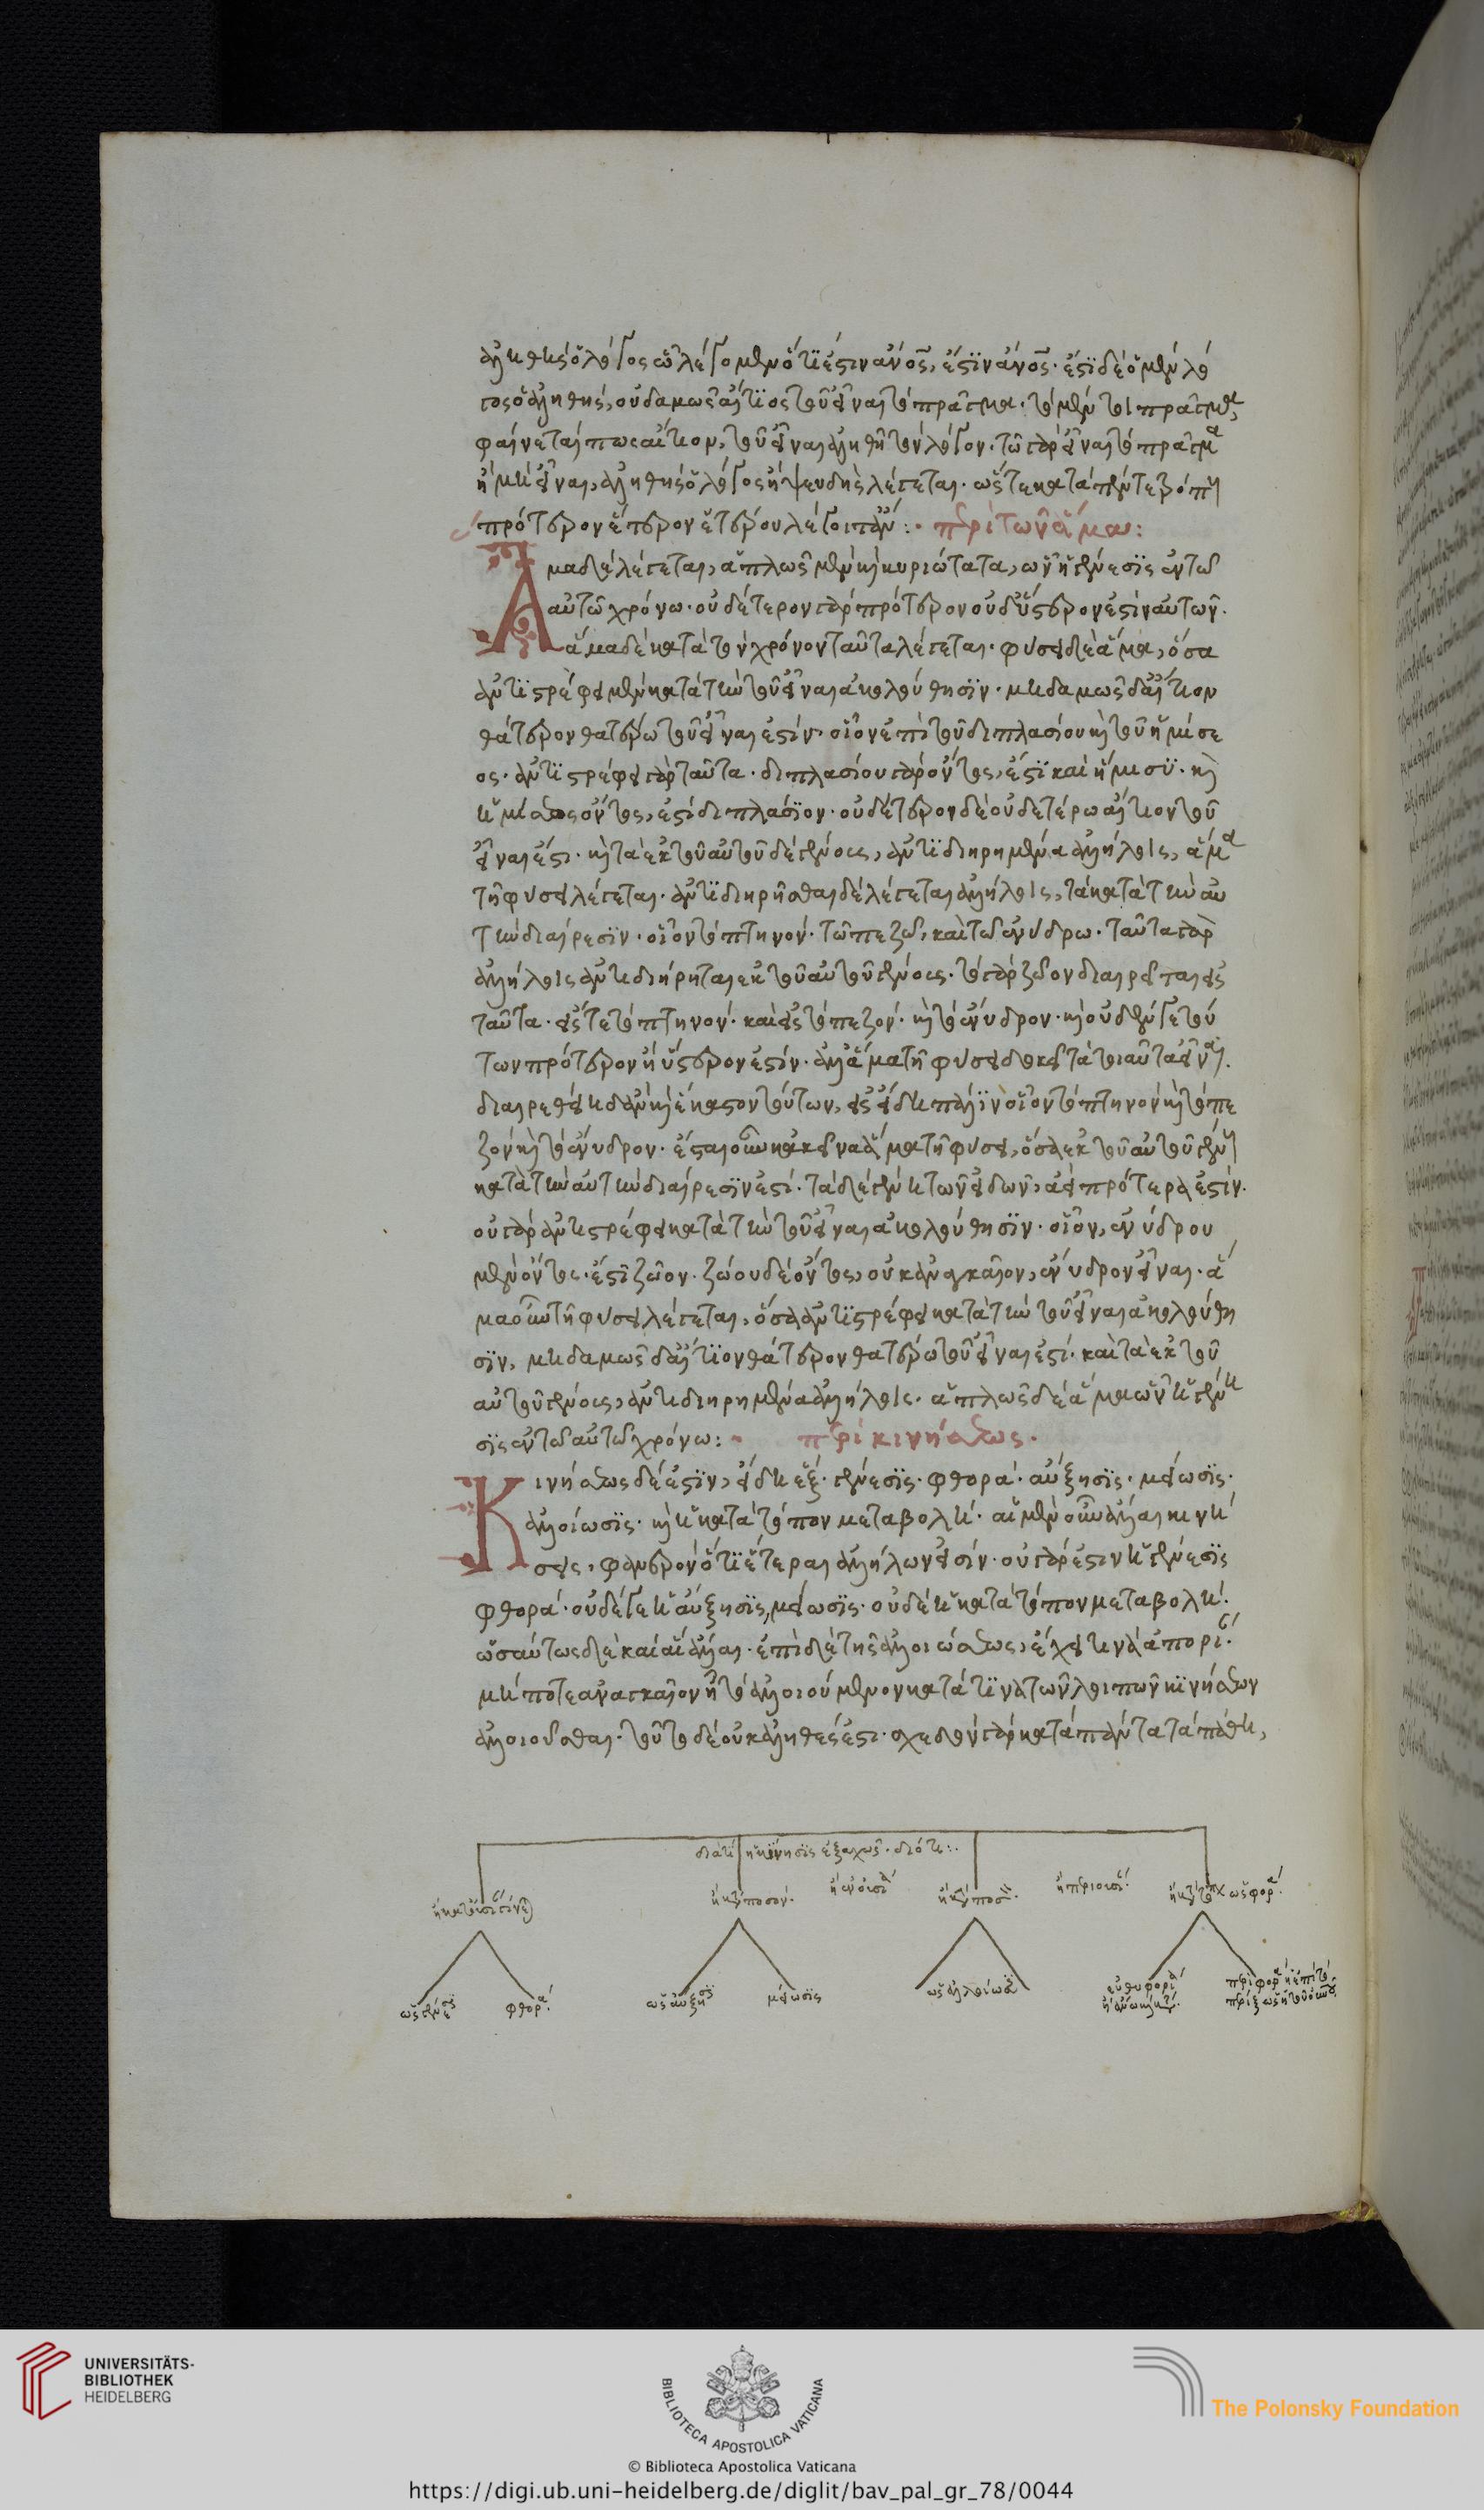 ἀληθὴς ὁ λόγος ᾧ λέγομεν ὅτι ἔστιν ἄνος, ἔστιν ἄνος· ἔστι δὲ ὁ μὲν λό
γος ὁ ἀληθὴς, οὐδαμῶς αἴτιος τοῦ εἶναι τὸ πρᾶγμα· τὸ μέν τοι πρᾶγμα,
φαίνεταί πως αἴτιον, τοῦ εἶναι ἀληθῆ τὸν λόγον· τῷ γὰρ εἶναι τὸ πρᾶγμα
ἢ μὴ εἶναι, ἀληθὴς ὁ λόγος ἢ ψευδὴς λέγεται· ὥστε κατὰ πέντε τρόπους
πρότερον ἕτερον ἑτέρου λέγοιτ' ἄν:· περὶ τῶν ἅμα:
Ἅμα δὲ λέγεται, ἁπλῶς μὲν καὶ κυριώτατα, ὧν ἡ γένεσις ἐν τῷ
αὐτῷ χρόνω· οὐδέτερον γὰρ πρότερον οὐδ' ὕστερον ἐστὶν αὐτῶν·
ἅμα δὲ κατὰ τὸν χρόνον ταῦτα λέγεται· φύσει δὲ ἅμα, ὅσα
ἀντιστρέφει μὲν κατὰ τὴν τοῦ εἶναι ἀκολούθησιν· μηδαμῶς δ' αἴτιον
θάτερον θατέρω τοῦ εἶναι ἐστίν· οἷον ἐπὶ τοῦ διπλασίου καὶ τοῦ ἡμίσε
ος· ἀντιστρέφει γὰρ ταῦτα· διπλασίου γὰρ ὄντος, ἔστι καὶ ἥμισυ· καὶ
ἡμίσεος ὄντος, ἐστὶ διπλάσιον· οὐδέτερον δὲ οὐδετέρω αἴτιον τοῦ
εἶναι ἐστι· καὶ τὰ ἐκ τοῦ αὐτοῦ δὲ γένους, ἀντιδιηρημένα ἀλλήλοις, ἅμα
τῇ φύσει λέγεται· ἀντιδιηρῆσθαι δὲ λέγεται ἀλλήλοις, τὰ κατὰ τὴν αὐ
τὴν διαίρεσιν· οἷον τὸ πτηνόν· τῷ πεζῷ, καὶ τῷ ἐνύδρω· ταῦτα γὰρ
ἀλλήλοις ἀντιδιήρηται ἐκ τοῦ αὐτοῦ γένους· τὸ γὰρ ζῷον διαιρεῖται εἰς
ταῦτα· εἴς τε τὸ πτηνόν· καὶ εἰς τὸ πεζόν· καὶ τὸ ἔνυδρον· καὶ οὐδέν γε τού
των πρότερον ἢ ὕστερον ἐστίν· ἀλλ' ἅμα τῇ φύσει δοκεῖ τὰ τοιαῦτα εἶναι·
διαιρεθείη δ' ἂν καὶ ἕκαστον τούτων, εἰς εἴδη πάλιν οἷον τὸ πτηνὸν καὶ τὸ πε
ζὸν καὶ τὸ ἔνυδρον· ἔσται οὖν κἀκεῖνα ἅμα τῇ φύσει, ὅσα ἐκ τοῦ αὐτοῦ γένους
κατὰ τὴν αὐτὴν διαίρεσιν ἐστί· τὰ δὲ γένη τῶν εἰδῶν, ἀεὶ πρότερα ἐστίν·
οὐ γὰρ ἀντιστρέφει κατὰ τὴν τοῦ εἶναι ἀκολούθησιν· οἷον, ἐνύδρου
μὲν ὄντος· ἔστι ζῷον· ζώου δὲ ὄντος, οὐκ ἀναγκαῖον, ἔνυδρον εἶναι· ἅ
μα οὖν τῇ φύσει λέγεται, ὅσα ἀντιστρέφει κατὰ τὴν τοῦ εἶναι ἀκολούθη
σιν, μηδαμῶς δ' αἴτιον θάτερον θατέρω τοῦ εἶναι ἐστί· καὶ τὰ ἐκ τοῦ
αὐτοῦ γένους, ἀντιδιηρημένα ἀλλήλοις· ἁπλῶς δὲ ἅμα ὧν ἡ γένε
σις ἐν τῷ αὐτῷ χρόνω:· περὶ κινήσεως·
Κινήσεως δέ ἐστιν, εἴδη ἕξ· γένεσις· φθορά· αὔξησις· μείωσις·
ἀλλοίωσις· καὶ ἡ κατὰ τόπον μεταβολή· αἱ μὲν οὖν ἄλλαι κινή
σεις, φανερὸν ὅτι ἕτεραι ἀλλήλων εἰσίν· οὐ γὰρ ἐστιν ἡ γένεσις
φθορά· οὐδέ γε ἡ αὔξησις, μείωσις· οὐδὲ ἡ κατὰ τόπον μεταβολή·
ὡσαύτως δὲ καὶ αἱ ἄλλαι· ἐπὶ δὲ τῆς ἀλλοιώσεως, ἔχει τινὰ ἀπορίαν·
μή ποτε ἀναγκαῖον ᾖ τὸ ἀλλοιούμενον κατά τινα τῶν λοιπῶν κινήσεων
ἀλλοιοῦσθαι· τοῦτο δὲ οὐκ ἀληθές ἐστι· σχεδὸν γὰρ κατὰ πάντα τὰ πάθη,
διατί ἡ κίνησις ἑξαχῶς· διότι:·
ἢ κατὰ ποσόν·
ἢ κατὰ ποιόν·
ὡς γένεσις φθορά· ὡς αὔξησις μείωσις ὡς ἀλλοίωσις
UNIVERSITÄTS-
BIBLIOTHEK
HEIDELBERG
BIBLIOTECA APOSTOLICA VATICANA
The Polonsky Foundation
© Biblioteca Apostolica Vaticana
https://digi.ub.uni-heidelberg.de/diglit/bav_pal_gr_78/0044